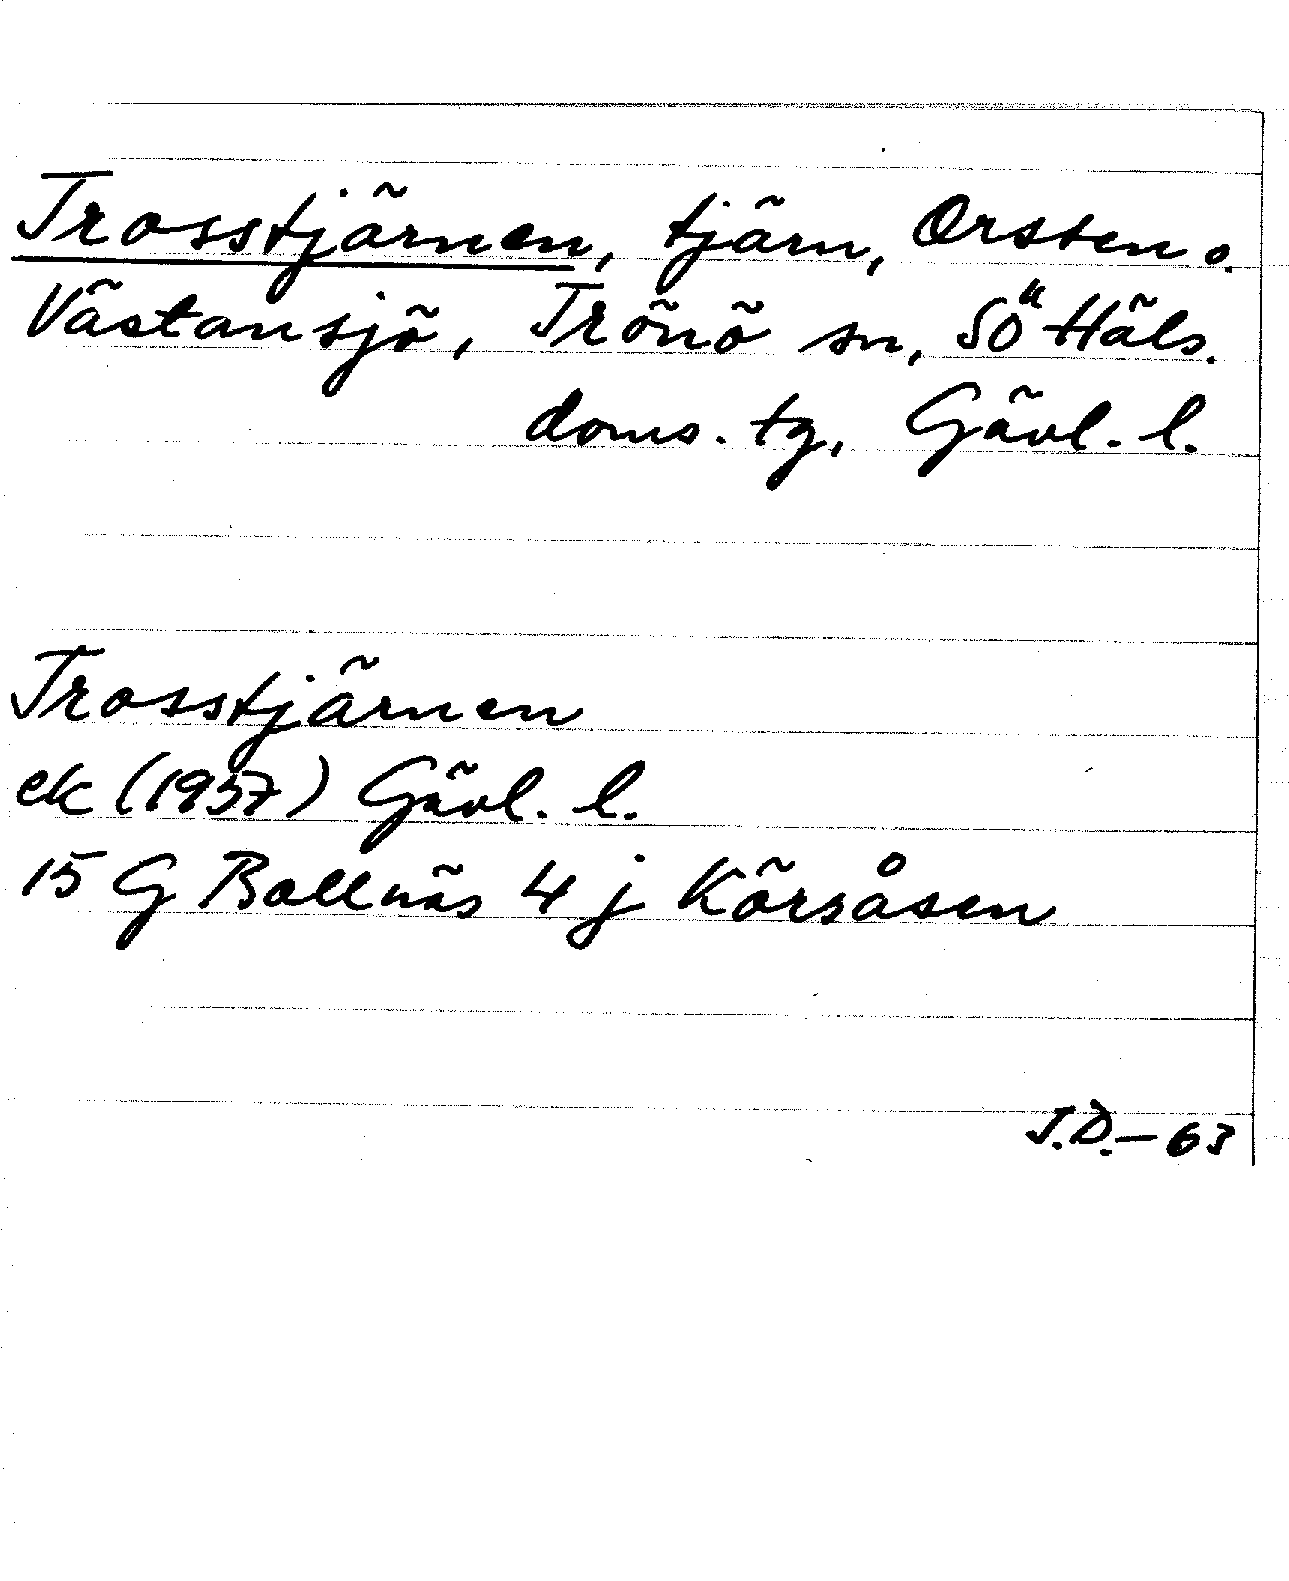 Trosstjärnen, tjärn, Orsten o.
Västansjö, Trönö sn, SÖ Häls.
doms. tg, Gävl. l.
Trosstjärnen
ek (1957) Gävl. l.
15 G Bollnäs 4 j Körsåsen
J.D.-63